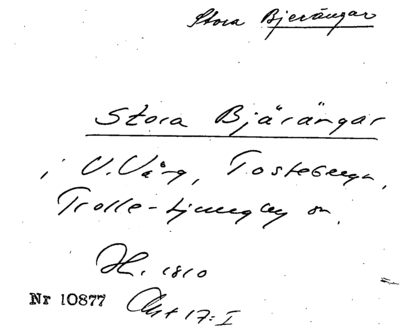 Stora Bjerängar
Stora Bjärängar
i V. Vång, Tosteberga,
Trolle-Ljungby sn.
H. 1810
Nr 10877 Akt 17:I